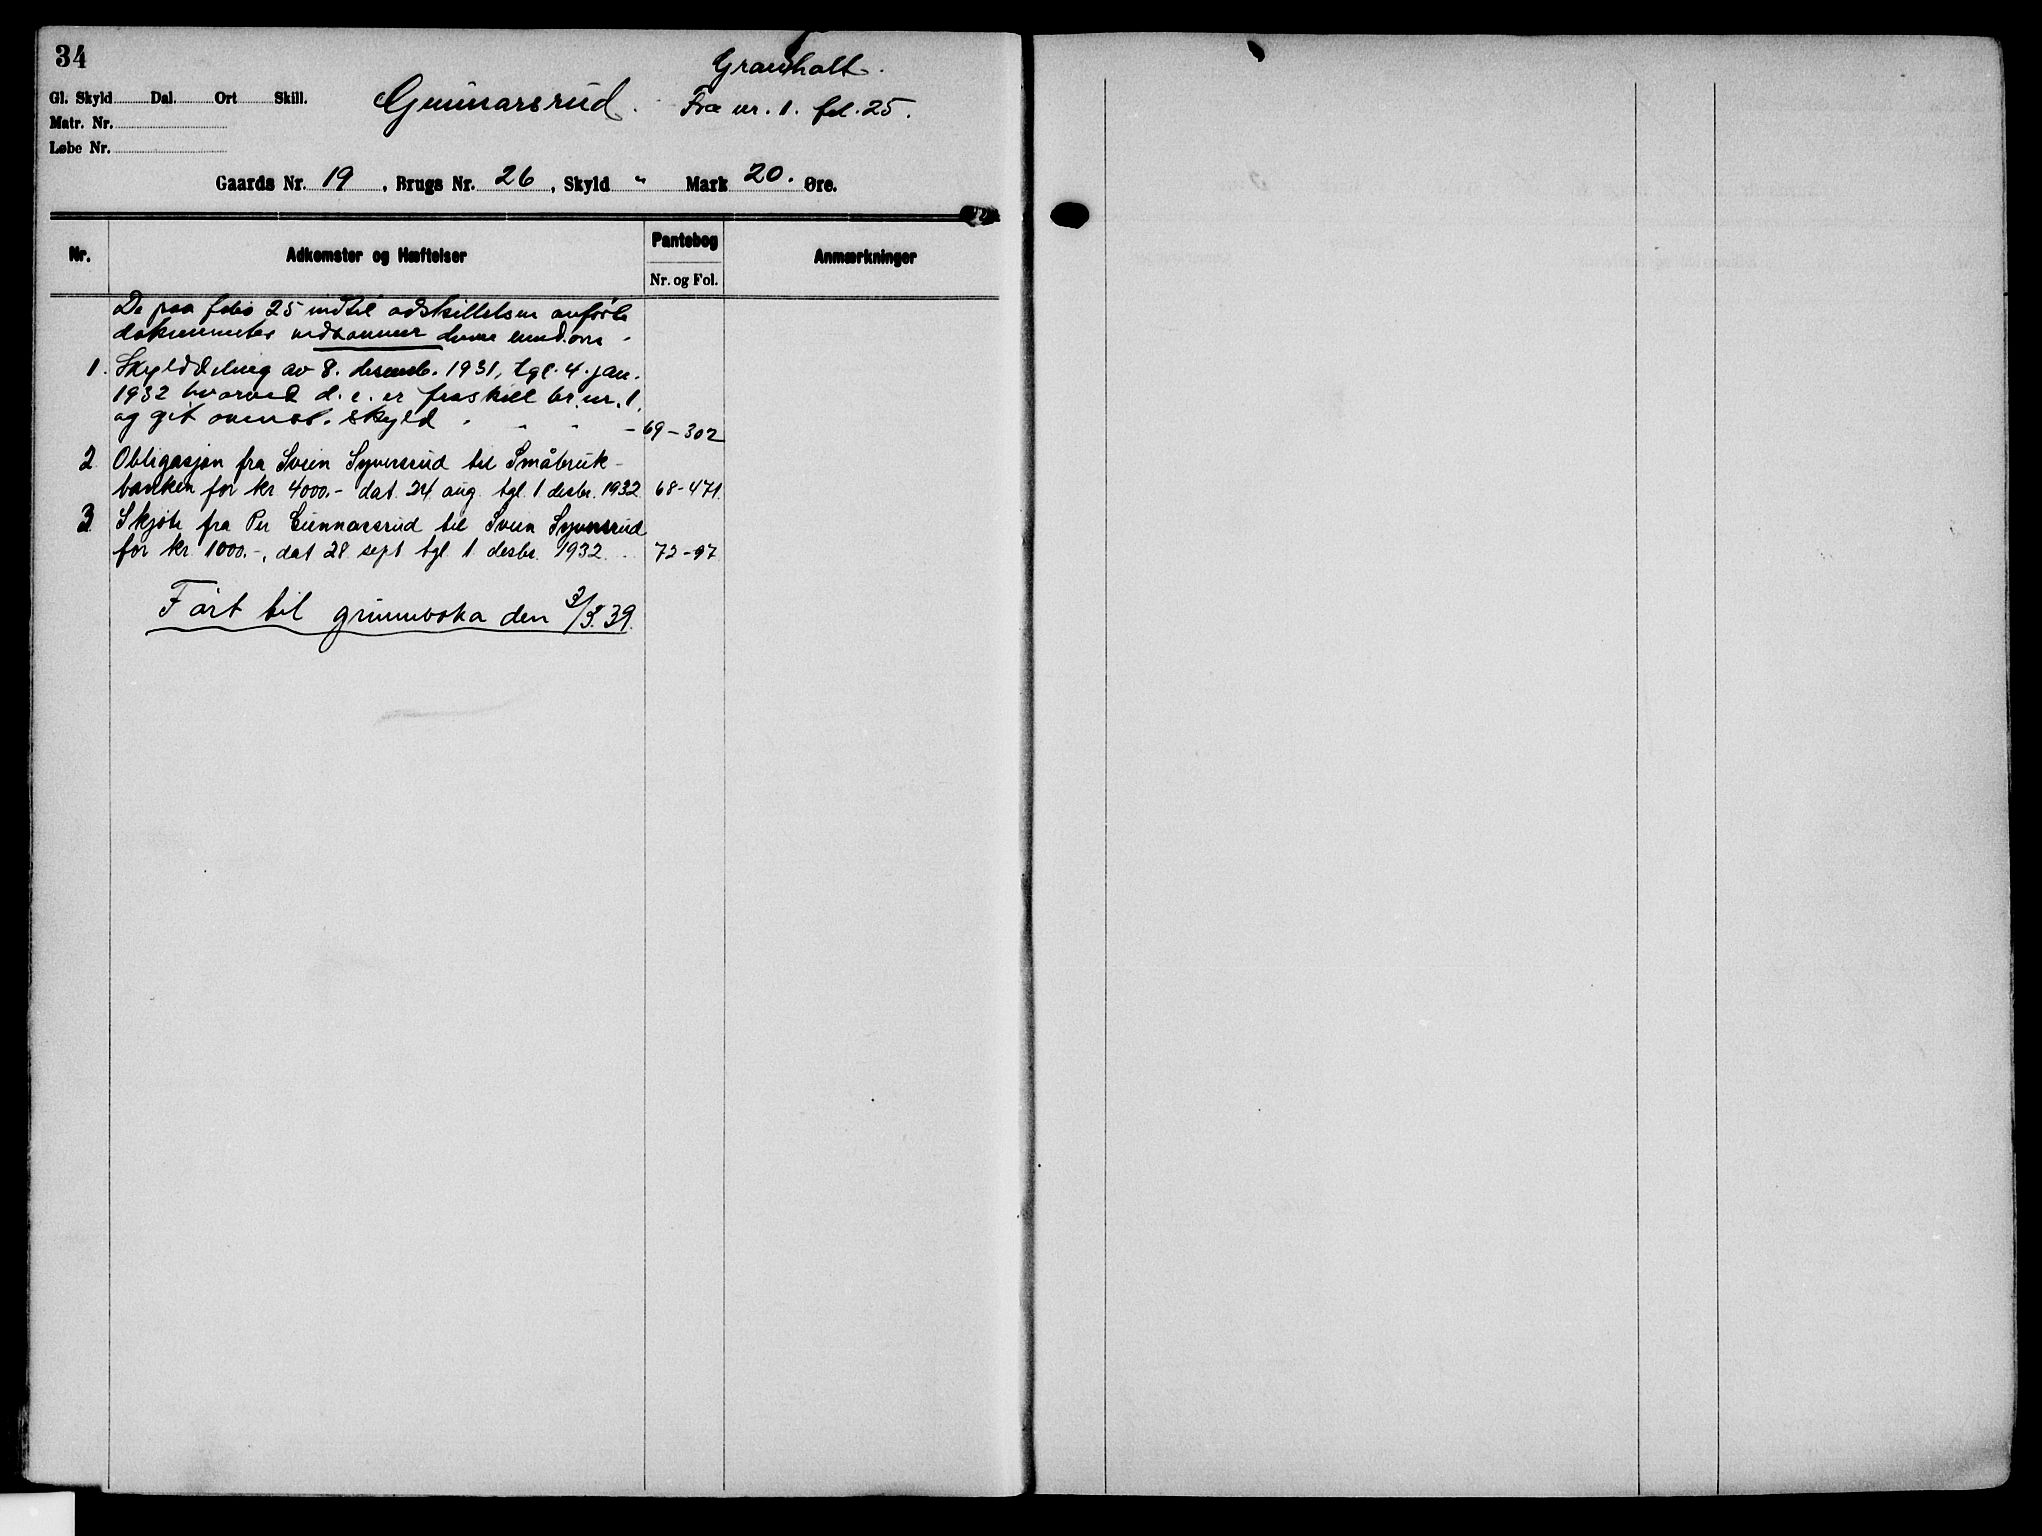 34
Granholt.
Gl. Skyld Dal. Ort Skill.
Gunnarsrud. Fra nr. 1. fol. 25.
Matr. Nr.
Løbe Nr.
Gaards Nr. 19, Brugs Nr. 26, Skyld " Mark 20. Øre.
Nr. Adkomster og Hæftelser Pantebog Anmærkninger
Nr. og Fol.
De paa folio 25 indtil adskillelsen anførte
dokumenter vedkommer denne eiendom.
1. Skylddeling av 8. desemb. 1931, tgl. 4. jan.
1932 hvorved d. e. er fraskilt br. nr. 1.
og git ovenst. skyld - 69-302
2. Obligasjon fra Svein Syversrud til Småbruk-
banken for kr 4000.- dat. 24 aug. tgl. 1 desbr. 1932 68-471.
3. Skjøte fra Per Gunnarsrud til Svein Syversrud
for kr. 1000.-, dat 28 sept tgl 1. desbr. 1932 72-97
Ført til grunnboka den 3/3.39.